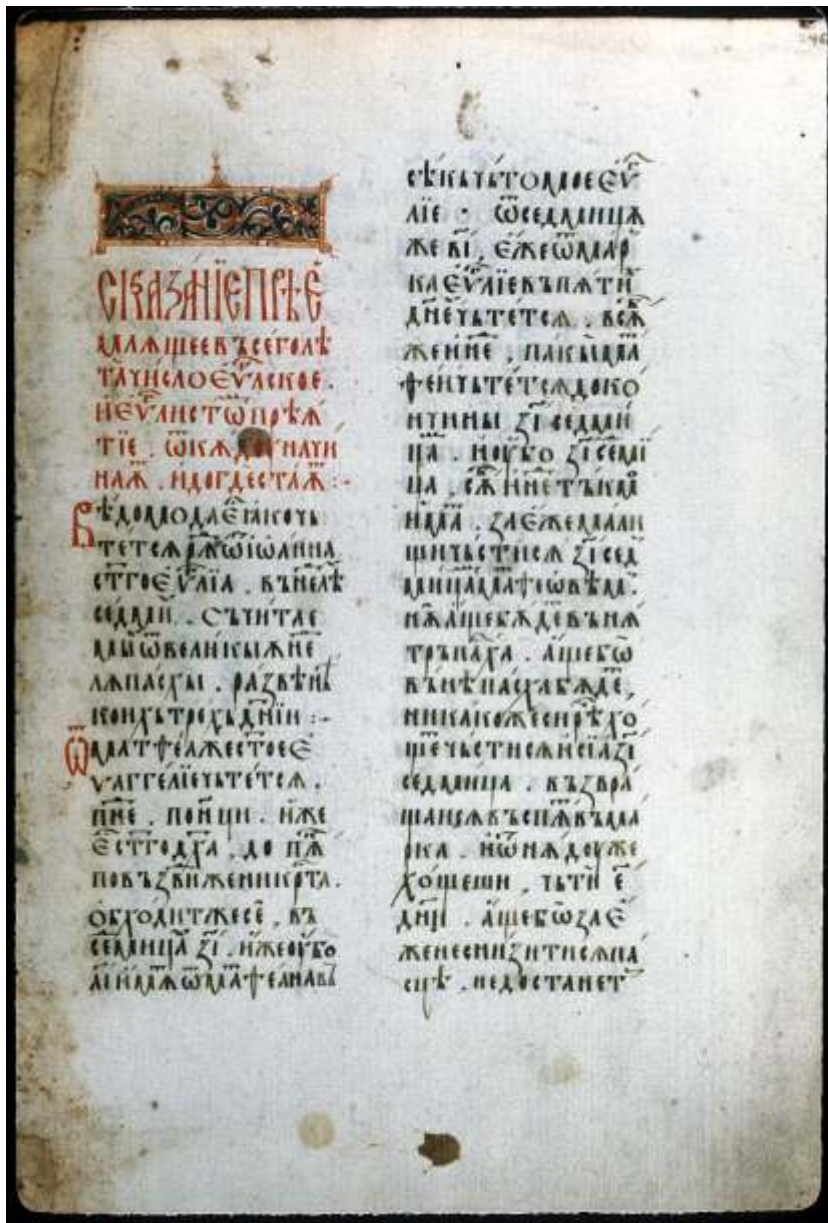 СКАЗАНЇЕ ПРЇЕ
МЛѦЩЕЕ ВЪСЕГО ЛѢ
ТА ЧИСЛО ЕѴЛСКОЕ .
И ЕѴЛИСТѠ ПРѢѦ
ТЇЕ . ѾКѪДОУ НАЧИ
НАѪ . И ДОГДЕ СТАѪ :-
Вѣдомо да є҆ ꙗко чь
тетсѧ ѿ іѡанна
ст҃го єѵ҃лїа . въ н҃елѣ
седми . Съчитае
мы ѿ великыѧ н҃е
лѧ пасхы . развѣ нѣ
конхъ трехъ дн҃їи :-
Ѿ матѳеа же стое є
ѵаггелїе чьтетсѧ .
по н҃ци . иже
ес҃ ст҃го д҃ха . до
по въздвижени кр҃та .
обходит же се . въ
седмица з҃ї . иже оубо
сѣкы чьтомое єѵ҃
лїе . ѿ седмица
же в҃ї , єже ѿ мар
ка єѵ҃лїе въ пѧти
дн҃е чьтетсѧ .
жение . пакы ма
ѳеи чьтетсѧ до ко
нчины з҃ї седми
ца . и оубо з҃ї семї
ца .
за єже мали
ши чьстисѧ з҃ї сед
мица матѳеѡвѣм .
аще бѫде вънѧ
трь пасха . аще бѡ
вънѣ пасха бѫде ,
никакоже сирѣ хо
ще чьстисѧ и сїа з҃ї
седмица . възвра
щаисѧ въспѧ въ ма
рка . и ѿ нѫдоуже
хощеши , чьти є
дни . аще бѡ за є
же не снизитисѧ па
сцѣ , недостанет